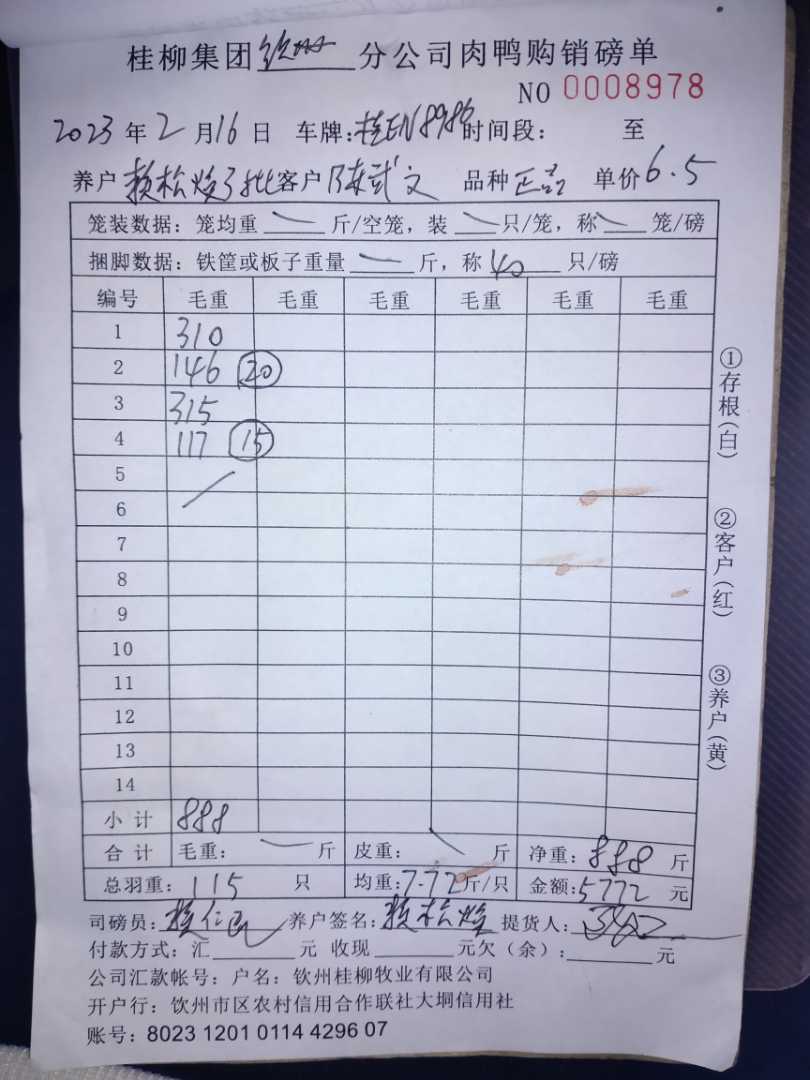 桂柳集团钦州分公司肉鸭购销磅单
NO 0008978
2023年2月16日 车牌:桂EN8986时间段: 至
养户 赖松焕3批客户陈武文 品种 正品 单价6.5
笼装数据:笼均重 斤/空笼,装 只/笼,称 笼/磅
捆脚数据:铁筐或板子重量 斤,称 40 只/磅
编号 毛重 毛重 毛重 毛重 毛重 毛重
1 310
2 146 20
3 315
4 117 15
5
6
7
8
9
10
11
12
13
14
小计 888
合计 毛重: 斤 皮重: 斤 净重:888 斤
总羽重:115 只 均重:7.72斤/只 金额:5772 元
司磅员: 养户签名:赖松焕 提货人:
付款方式:汇 元 收现 元欠(余): 元
公司汇款帐号:户名:钦州桂柳牧业有限公司
开户行:饮州市区农村信用合作联社大垌信用社
账号:8023 1201 0114 4296 07
①存根(白)
②客户(红)
③养户(黄)